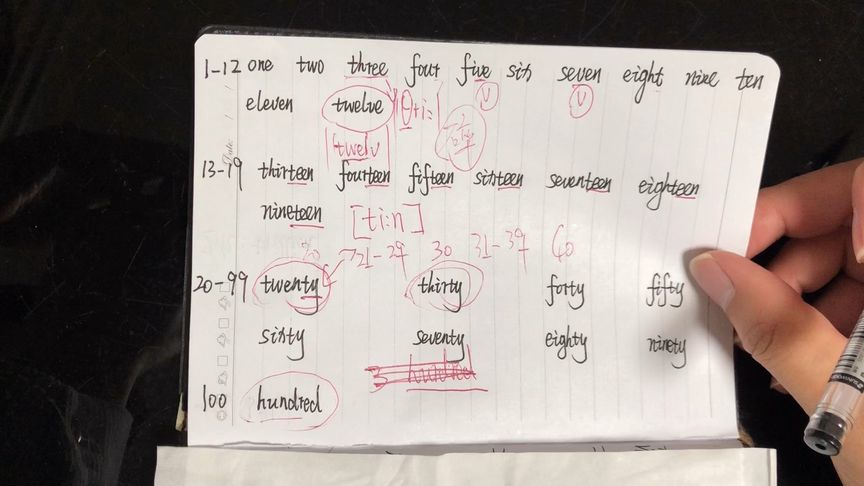 1-12 one two three four five six seven eight nine ten
v v
eleven twelve θri:
twelv
13-19 thirteen fourteen fifteen sixteen seventeen eighteen
nineteen [ti:n]
20 21-29 30 31-39 40
20-99 twenty thirty forty fifty
sixty seventy eighty ninety
100 hundred